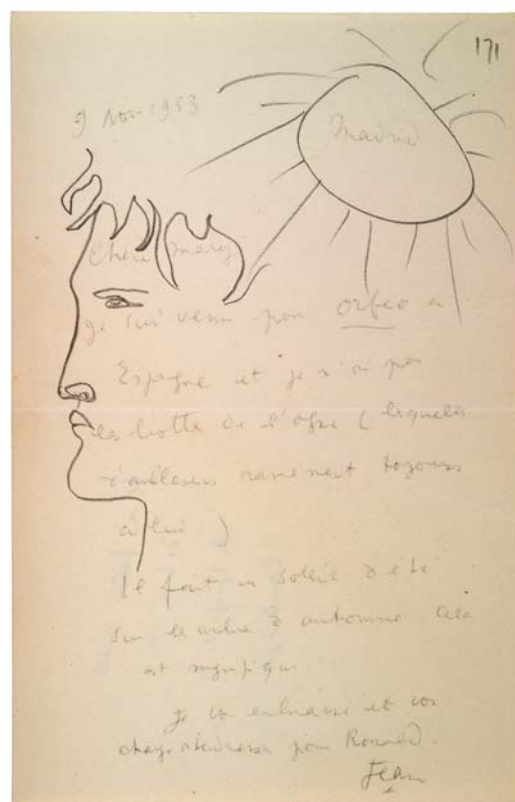 171
9 Nov 1953
Madrid
Chère Mary
je suis venu pour Orfeo en
Espagne et je n'ai pas
les bottes de l'ogre (lesquelles
d'ailleurs ramenent toujours
à lui)
Il fait un soleil d'été
sur les arbres d'automne. Cela
est magnifique.
Je vous embrasse et vous
pour Ronald.
Jean